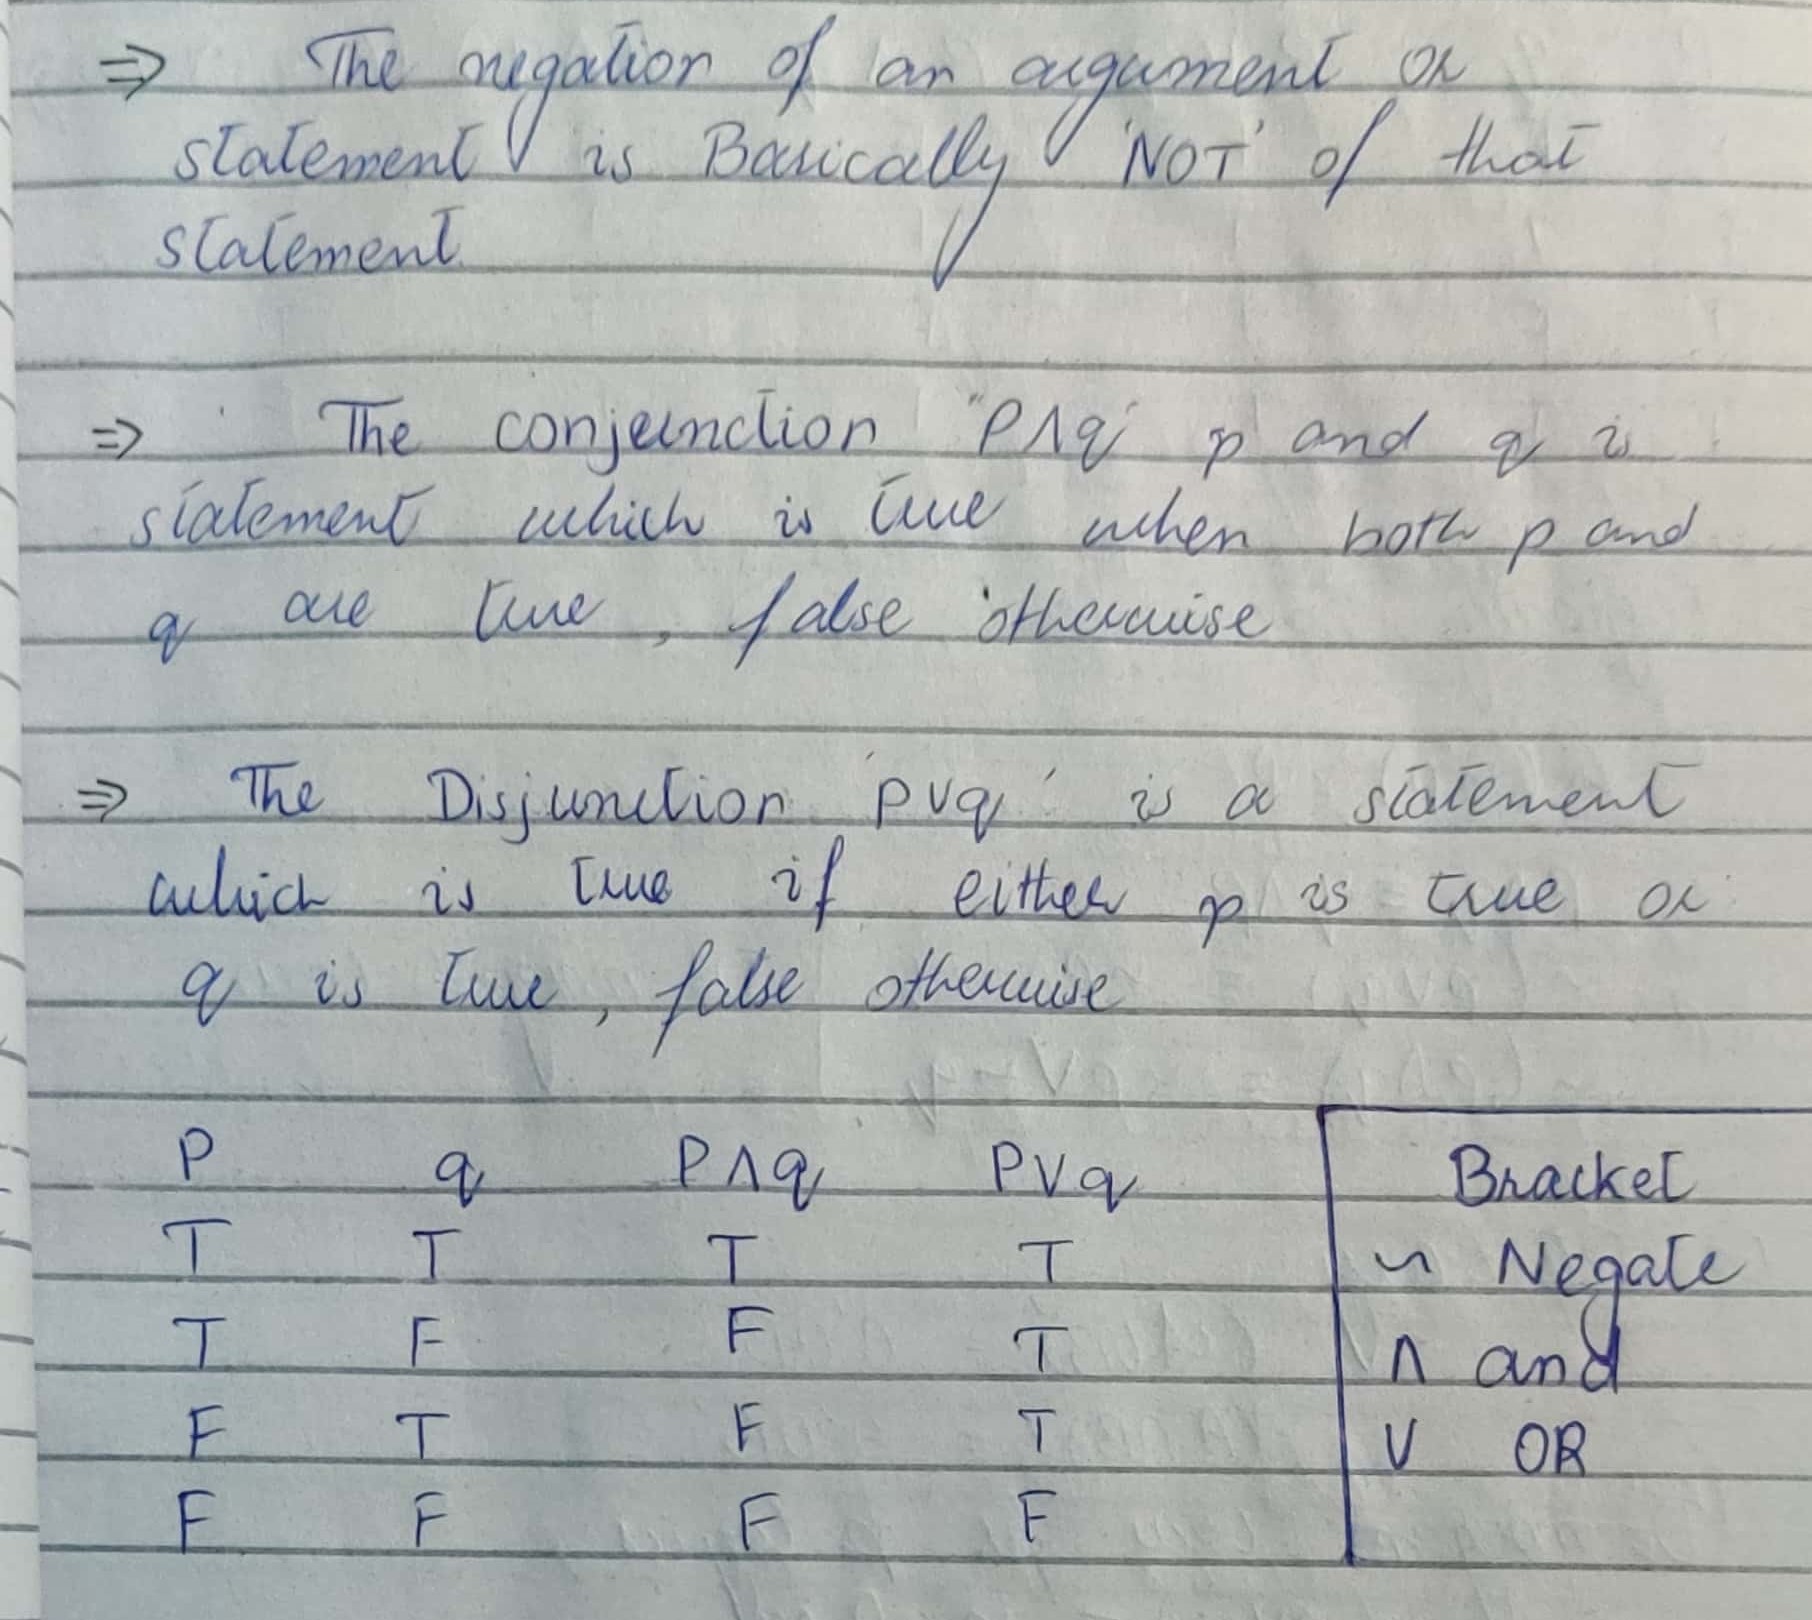 ⇒ The negation of an argument or
statement is Basically 'NOT' of that
statement.
⇒ The conjunction "P∧q" p and q is
statement which is true when both p and
q are true, false otherwise
⇒ The Disjunction 'p∨q' is a statement
which is true if either p is true or
q is true, false otherwise
P q P∧q P∨q
T T T T
T F F T
F T F T
F F F F
Bracket
~ Negate
∧ and
∨ OR